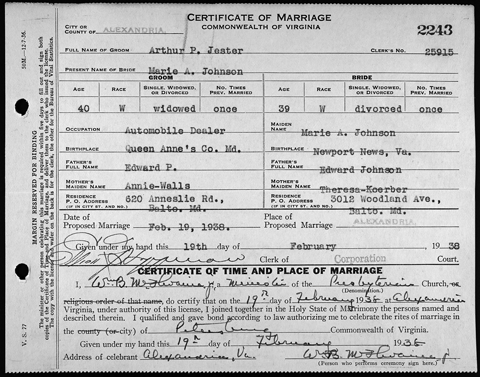 CERTIFICATE OF MARRIAGE
COMMONWEALTH OF VIRGINIA
2243
CITY OR
COUNTY OF ALEXANDRIA,
FULL NAME OF GROOM Arthur P. Jester CLERK'S NO. 25915
PRESENT NAME OF BRIDE Marie A. Johnson
GROOM BRIDE
AGE RACE SINGLE, WIDOWED, OR DIVORCED NO. TIMES PREV. MARRIED AGE RACE SINGLE, WIDOWED, OR DIVORCED NO. TIMES PREV. MARRIED
40 W widowed once 39 W divorced once
OCCUPATION Automobile Dealer MAIDEN NAME Marie A. Johnson
BIRTHPLACE Queen Anne's Co. Md. BIRTHPLACE Newport News, Va.
FATHER'S FULL NAME Edward P. FATHER'S FULL NAME Edward Johnson
MOTHER'S MAIDEN NAME Annie-Walls MOTHER'S MAIDEN NAME Theresa-Koerber
RESIDENCE P. O. ADDRESS (IF IN CITY ST. AND NO.) 620 Anneslie Rd., Balto. Md. RESIDENCE P. O. ADDRESS (IF IN CITY ST. AND NO.) 3012 Woodland Ave., Balto. Md.
Date of Proposed Marriage Feb. 19, 1938. Place of Proposed Marriage ALEXANDRIA,
Given under my hand this 19th day of February 1938
Clerk of Corporation Court.
CERTIFICATE OF TIME AND PLACE OF MARRIAGE
I, W. B. McIlwaine, Jr., a Minister of the Presbyterian Church, or
(Denomination)
religious order of that name, do certify that on the 19th day of February 1938, at Alexandria
Virginia, under authority of this license, I joined together in the Holy State of Matrimony the persons named and
described therein. I qualified and gave bond according to law authorizing me to celebrate the rites of marriage in
the county (or city) of Petersburg Commonwealth of Virginia.
Given under my hand this 19th day of February 1938
Address of celebrant Alexandria, Va. W. B. McIlwaine, Jr.
(Person who performs ceremony sign here)
MARGIN RESERVED FOR BINDING
V. S. 77
50M—12-7-36.